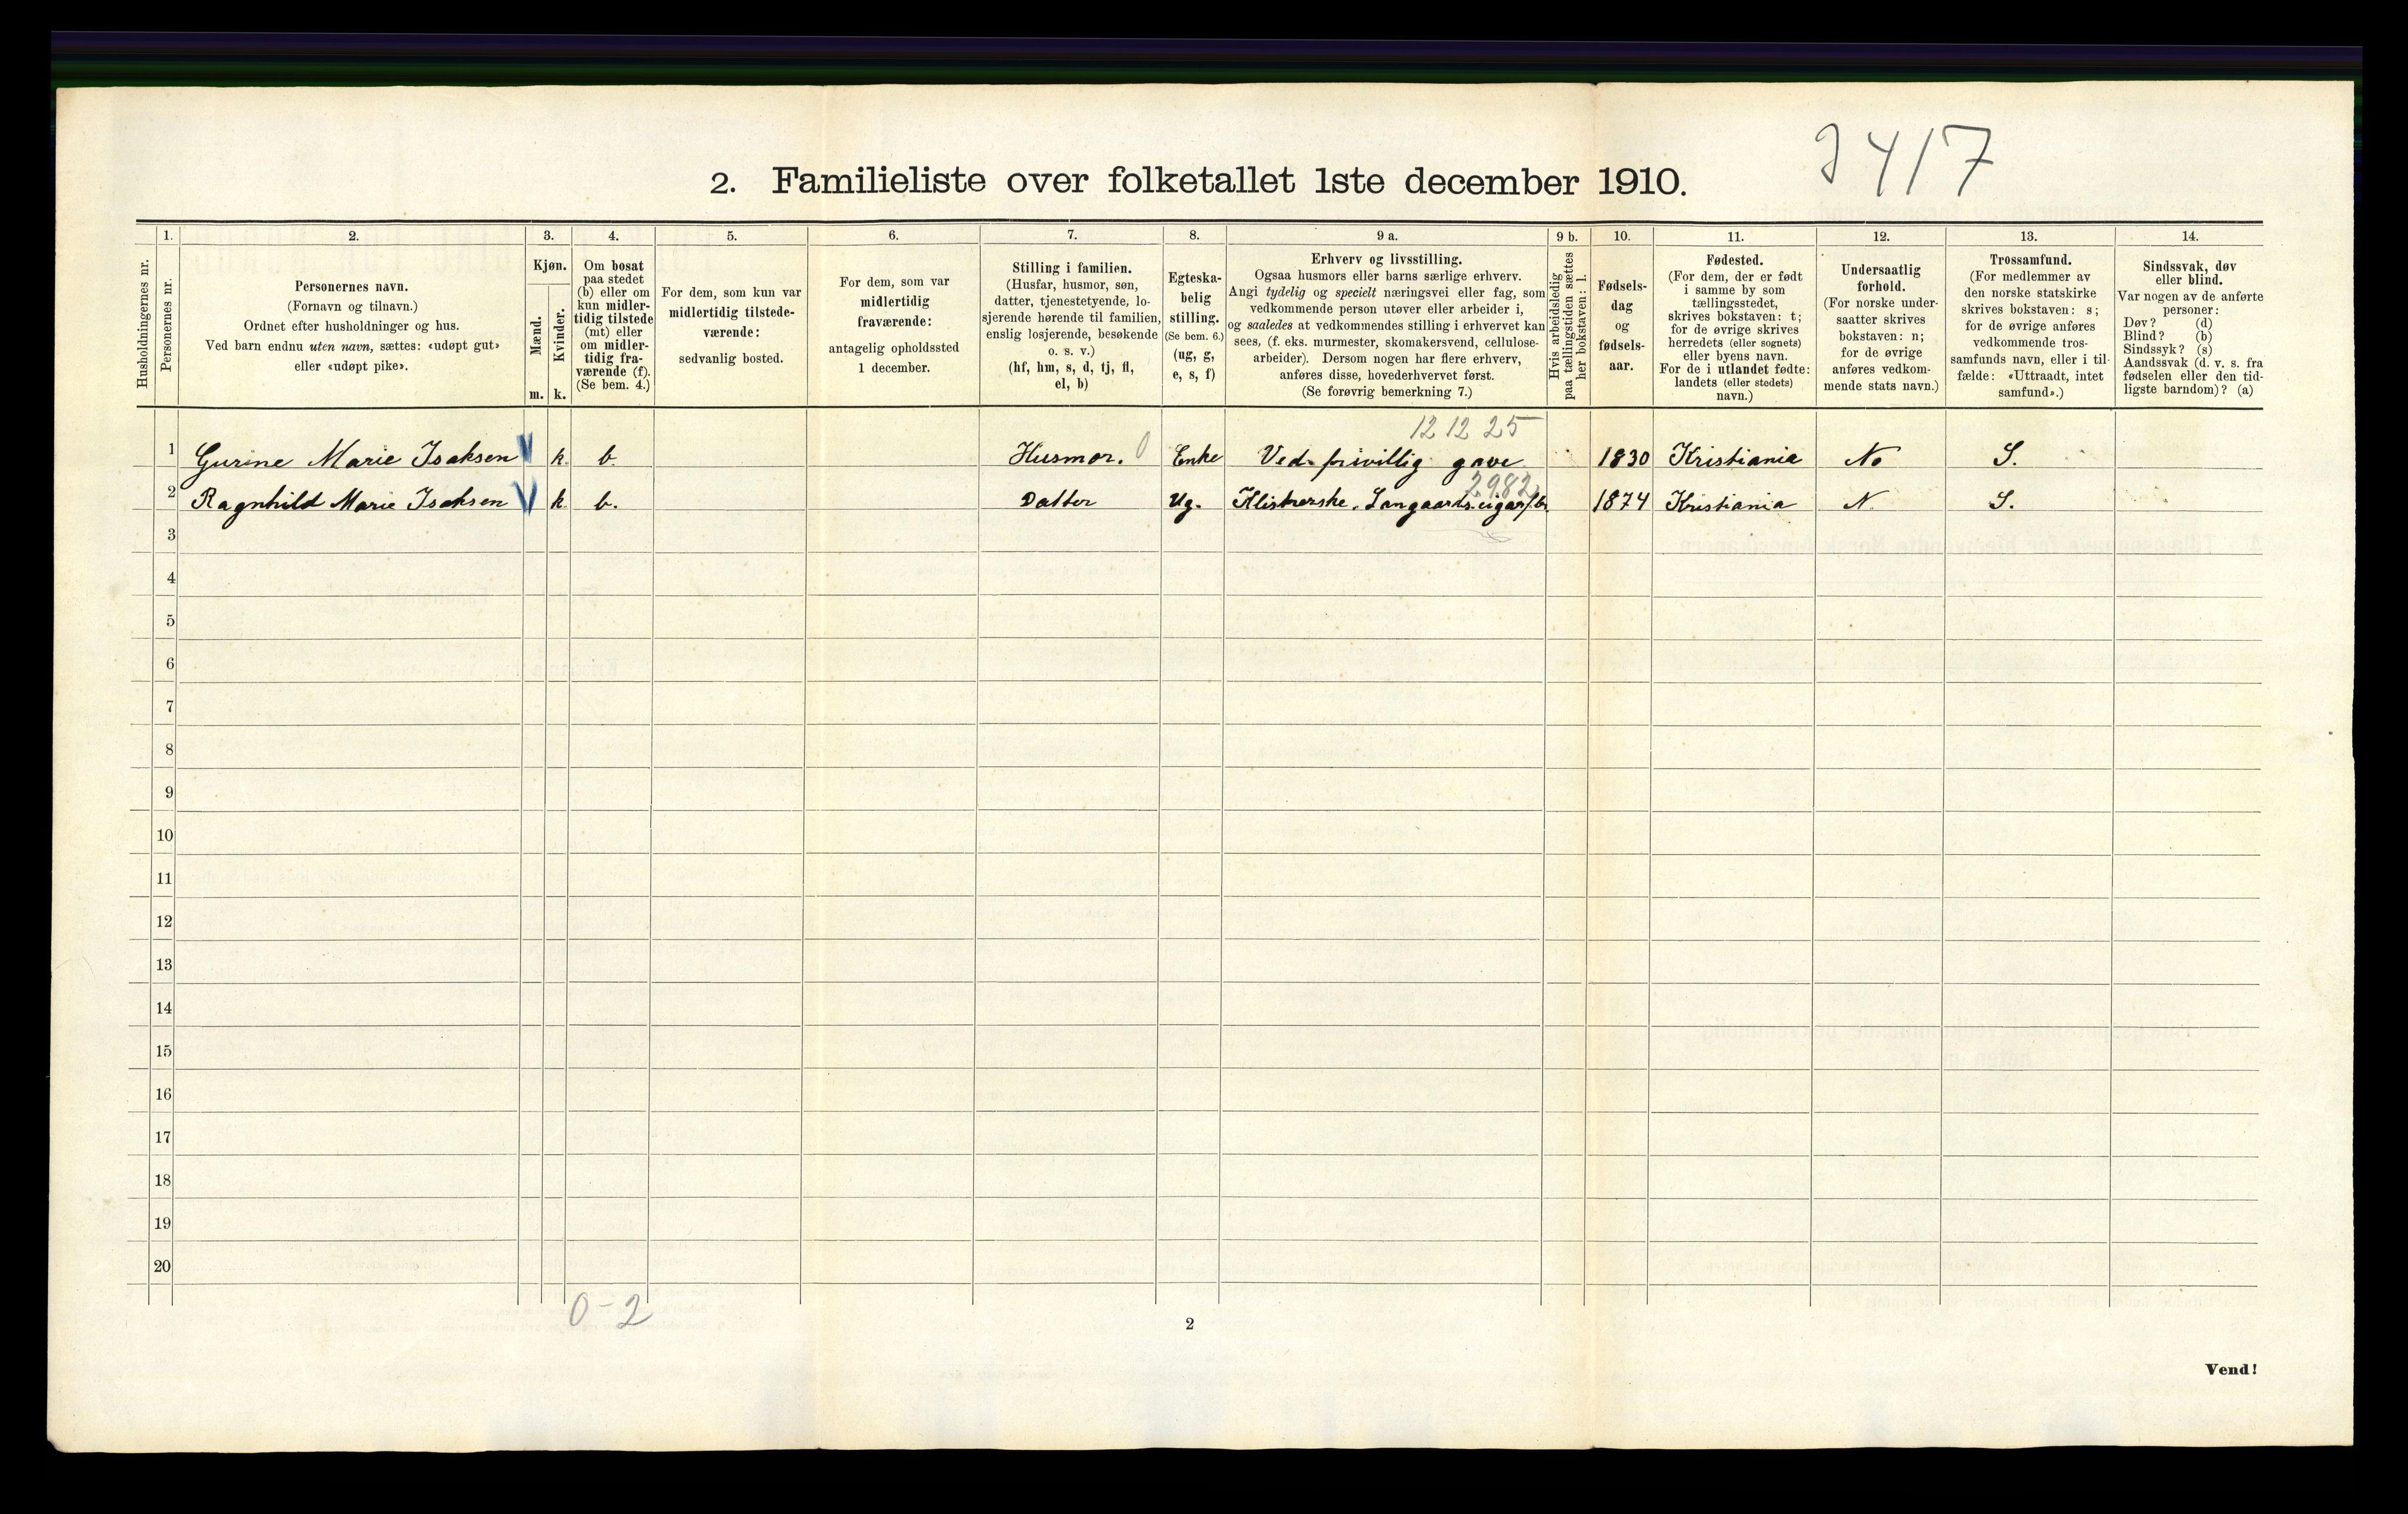 3417
2. Familieliste over folketallet 1ste december 1910.
Husholdningernes nr.
1.
Personernes nr.
2.
Personernes navn.
(Fornavn og tilnavn.)
Ordnet efter husholdninger og hus.
Ved barn endnu uten navn, sættes: «udøpt gut»
eller «udøpt pike».
3.
Kjøn.
Mænd.
Kvinder.
m. k.
4.
Om bosat
paa stedet
(b) eller om
kun midler-
tidig tilstede
(mt) eller
om midler-
tidig fra-
værende (f).
(Se bem. 4.)
5.
For dem, som kun var
midlertidig tilstede-
værende:
sedvanlig bosted.
6.
For dem, som var
midlertidig
fraværende:
antagelig opholdssted
1 december.
7.
Stilling i familien.
(Husfar, husmor, søn,
datter, tjenestetyende, lo-
sjerende hørende til familien,
enslig losjerende, besøkende
o. s. v.)
(hf, hm, s, d, tj, fl,
el, b)
8.
Egteska-
belig
stilling.
(Se bem. 6.)
(ug, g,
e, s, f)
9 a.
Erhverv og livsstilling.
Ogsaa husmors eller barns særlige erhverv.
Angi tydelig og specielt næringsvei eller fag, som
vedkommende person utøver eller arbeider i,
og saaledes at vedkommendes stilling i erhvervet kan
sees, (f. eks. murmester, skomakersvend, cellulose-
arbeider). Dersom nogen har flere erhverv,
anføres disse, hovederhvervet først.
(Se forøvrig bemerkning 7.)
9 b.
Hvis arbeidsledig
paa tællingstiden sættes
her bokstaven: l.
10.
Fødsels-
dag
og
fødsels-
aar.
11.
Fødested.
(For dem, der er født
i samme by som
tællingsstedet,
skrives bokstaven: t;
for de øvrige skrives
herredets (eller sognets)
eller byens navn.
For de i utlandet fødte:
landets (eller stedets)
navn.)
12.
Undersaatlig
forhold.
(For norske under-
saatter skrives
bokstaven: n;
for de øvrige
anføres vedkom-
mende stats navn.)
13.
Trossamfund.
(For medlemmer av
den norske statskirke
skrives bokstaven: s;
for de øvrige anføres
vedkommende tros-
samfunds navn, eller i til-
fælde: «Uttraadt, intet
samfund».)
14.
Sindssvak, døv
eller blind.
Var nogen av de anførte
personer:
Døv? (d)
Blind? (b)
Sindssyk? (s)
Aandssvak (d. v. s. fra
fødselen eller den tid-
ligste barndom)? (a)
12 12 25
1 Gurine Marie Isaksen k. b. Husmor. 0 Enke Ved privillig gave 1830 Kristiania No S.
2982
2 Ragnhild Marie Isaksen k. b. Datter Ug. Klistrerske. Langaards cigarfbr. 1874 Kristiania N. S.
3
4
5
6
7
8
9
10
11
12
13
14
15
16
17
18
19
20
0-2
2
Vend!